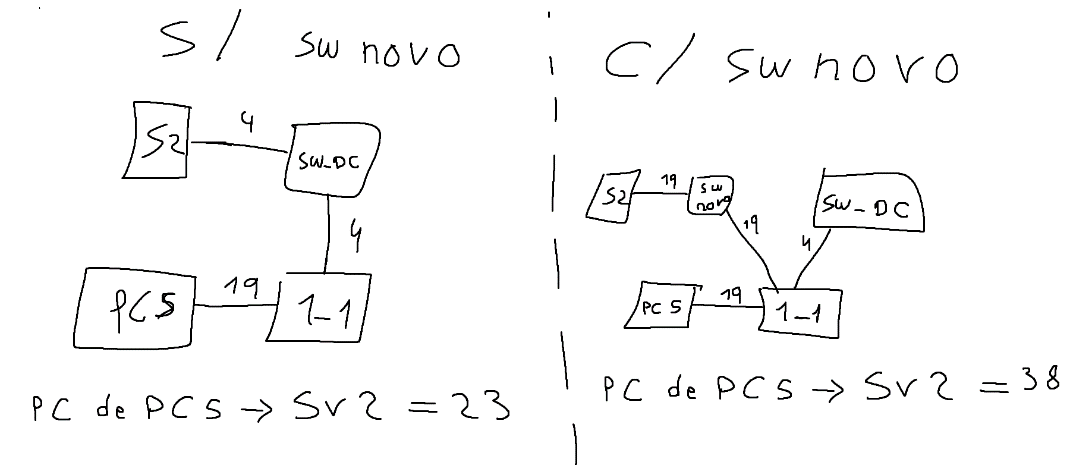 S/ sw novo
S2
4
SW_DC
4
PC5
19
1_1
PC de PC5 → Sv2 = 23
C/ sw novo
S2
19
sw
novo
19
SW_DC
4
PC5
19
1_1
PC de PC5 → Sv2 = 38